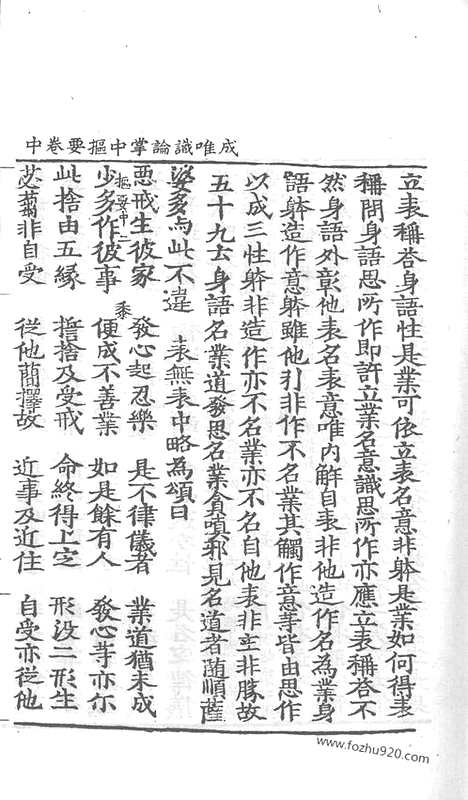 成唯識論掌中樞要卷中
立表稱荅身語性是業可依立表名意非躰是業如何得表
稱問身語思所作即許立業名意識思所作亦應立表稱荅不
然身語外彰他表名表意唯内解自表非他造作名為業身
語躰造作意躰雖他引非作不名業其觸作意等皆由思作
以成三性躰非造作亦不名業亦不名自他表非主非勝故
五十九云身語名業道發思名業貪嗔邪見名道者隨順薩
婆多与此不違　表無表中略為頌曰
惡戒生彼家　發心起忍樂　是不律儀者　業道猶未成
樞要中
少多作彼事　便成不善業　如是餘有人　發心等亦尒
黍
此捨由五縁　擔捨及受戒　命終得上定　形没二形生
苾蒭非自受　從他蕳擇故　近事及近住　自受亦從他
www.fozhu920.com